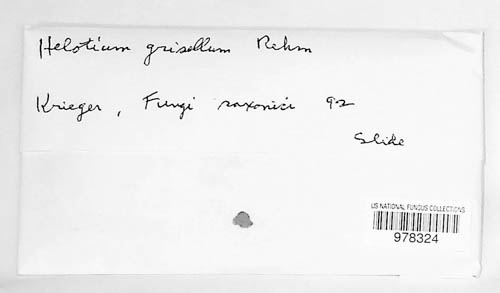 Helotium grisellum Rehm
Krieger, Fungi saxonici 92
Slide
US NATIONAL FUNGUS COLLECTIONS
978324